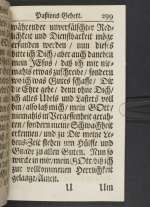 Passions-Gebett. 299
währender unverfälschter Red-
lichkeit und Dienstbarkeit möge
erfunden werden / nun dieses
bitte ich Dich / aber auch daneben
mein JEsus / daß ich mir nie-
mahls etwas zuschreibe / sondern
wo ich was Gutes schaffe / Dir
die Ehre gebe / denn ohne Dich /
ich alles Übels und Lasters voll
bin / also laß mich / mein GOtt /
niemahls in Vergessenheit gerath-
en / sondern meine Schwachheit
erkennen / und zu Dir meine Le-
bens-Zeit flehen um Hülffe und
Gnade zu allen Guten. Nun so
werde in mir / mein GOtt / biß ich
zur vollkommenen Herrlichkeit
gelange / Amen.
U Um